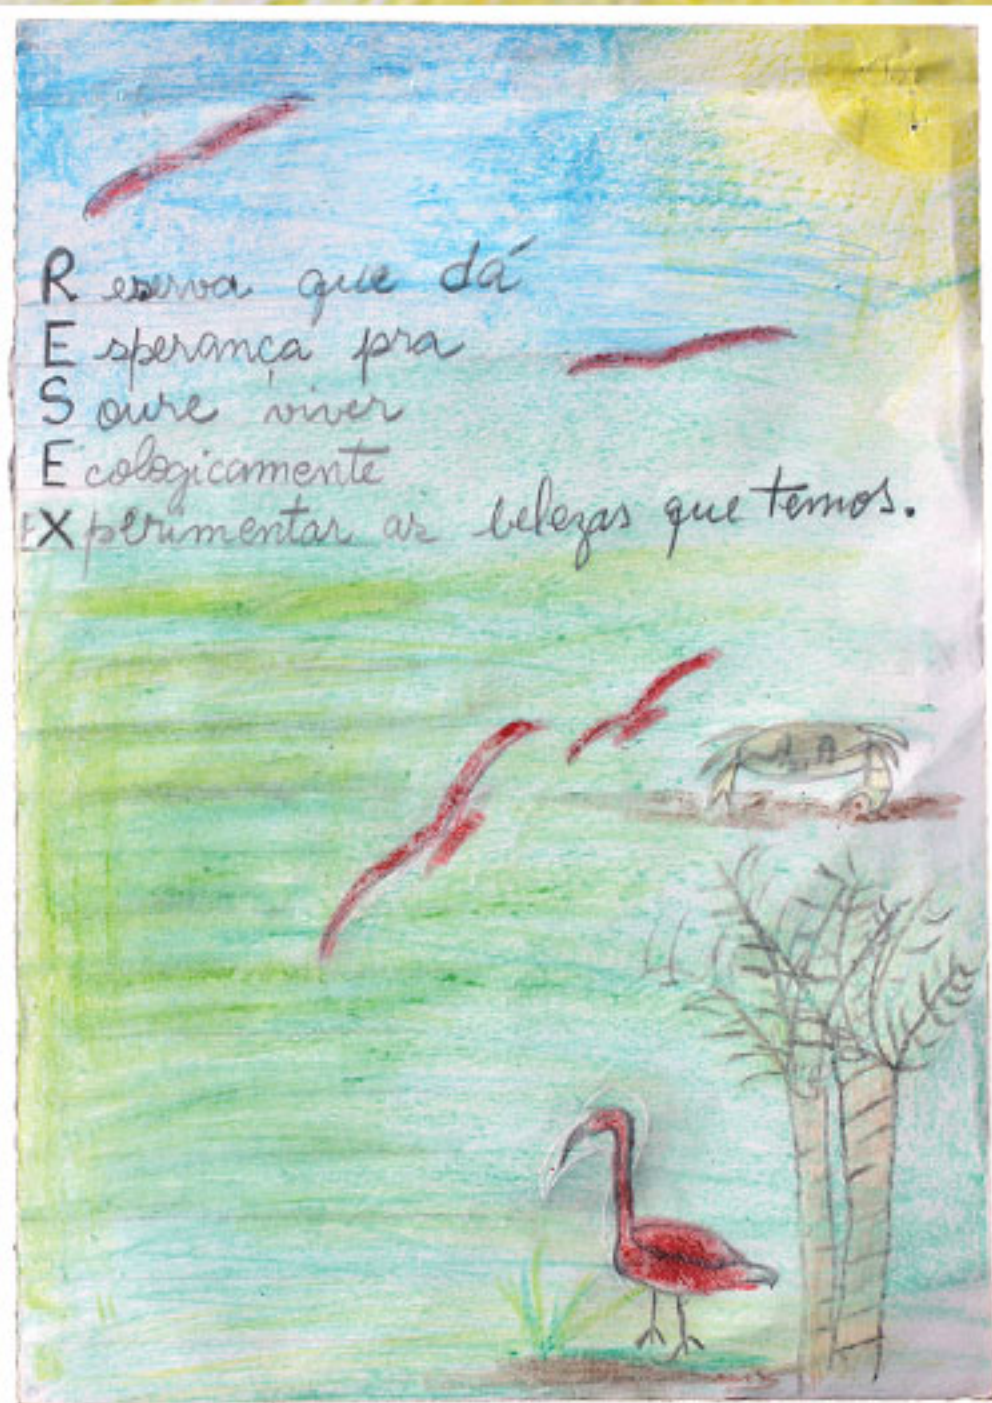 Reserva que dá
Esperança pra
Soure viver
Ecologicamente
EXperimentar as belezas que temos.